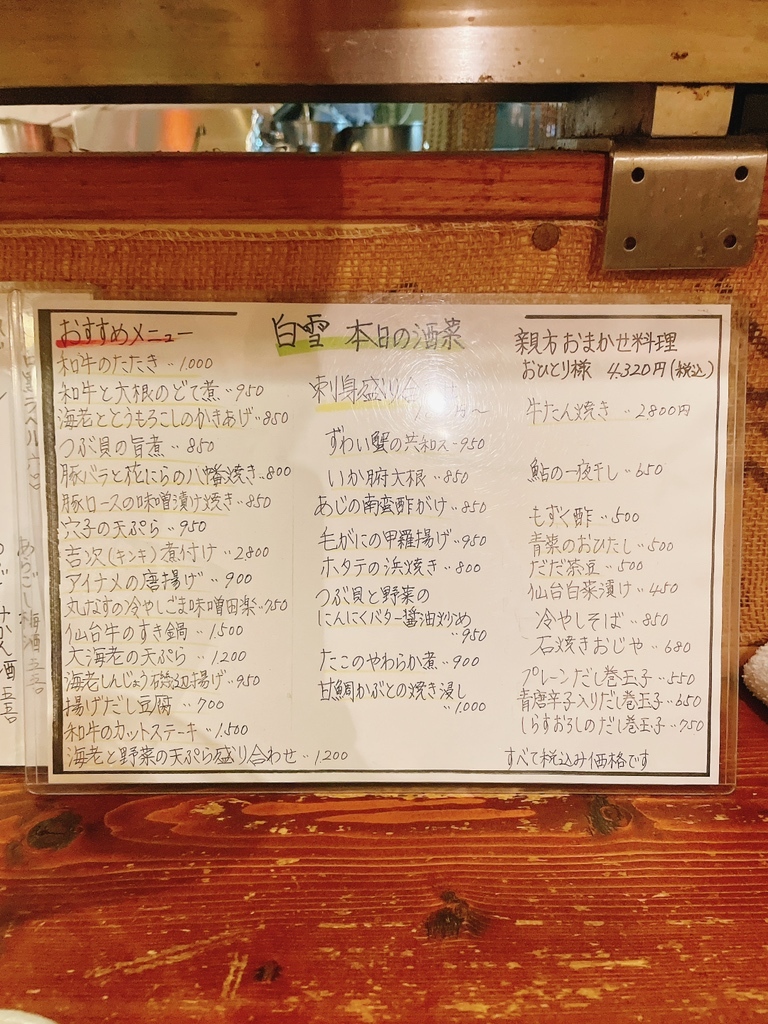 白雪 本日の酒菜
おすすめメニュー
和牛のたたき・・1.000
和牛と大根のどて煮・・950
海老ととうもろこしのかきあげ・・850
つぶ貝の旨煮・・850
豚バラと花にらの八幡焼き・・800
豚ロースの味噌漬け焼き・・850
穴子の天ぷら・・950
吉次(キンキ)煮付け・・2800
アイナメの唐揚げ・・900
丸なすの冷やしごま味噌田楽・・750
仙台牛のすき鍋・・1.500
大海老の天ぷら・・1.200
海老しんじょう磯辺揚げ・・950
揚げだし豆腐・・700
和牛のカットステーキ・・1.500
海老と野菜の天ぷら盛り合わせ・・1.200
刺身盛り
円〜
ずわい蟹の共和え・・950
いか腑大根・・850
あじの南蛮酢がけ・・850
毛がにの甲羅揚げ・・950
ホタテの浜焼き・・800
つぶ貝と野菜の
にんにくバター醤油炒め
・・950
たこのやわらか煮・・900
甘鯛かぶとの焼き浸し
・・1.000
親方おまかせ料理
おひとり様 4.320円(税込)
牛たん焼き・・2800円
鮎の一夜干し・・650
もずく酢・・500
青菜のおひたし・・500
だだ茶豆・・500
仙台白菜漬け・・450
冷やしそば・・850
石焼きおじや・・680
プレーンだし巻玉子・・550
青唐辛子入りだし巻玉子・・650
しらすおろしのだし巻玉子・・750
すべて税込み価格です